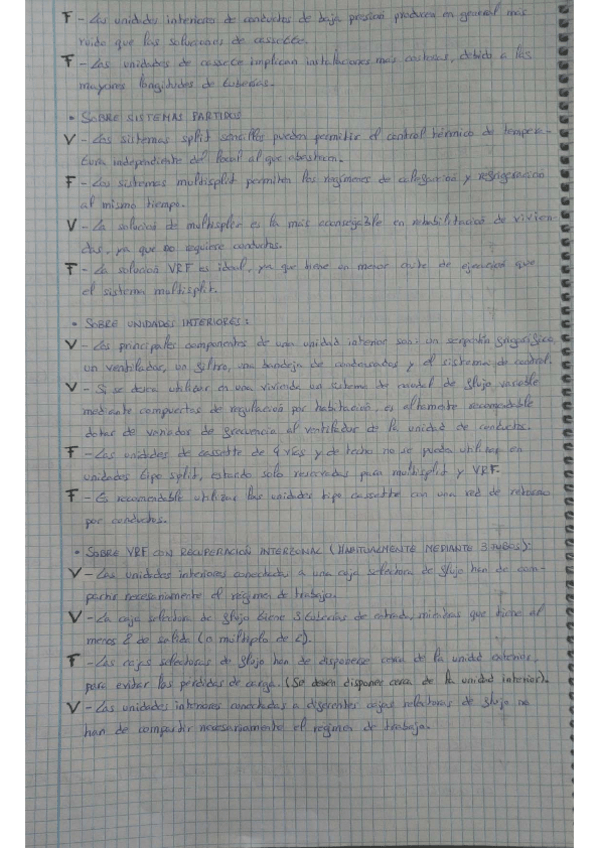 F - Las unidades interiores de conductos de baja presión producen en general más
ruido que las soluciones de cassette.
F - Las unidades de cassette implican instalaciones más costosas, debido a las
mayores longitudes de tuberías.
• SOBRE SISTEMAS PARTIDOS
V - Los sistemas split sencillos pueden permitir el control térmico de tempera-
tura independiente del local al que abastecen.
F - Los sistemas multisplit permiten los regímenes de calefacción y refrigeración
al mismo tiempo.
V - La solución de multisplit es la más aconsejable en rehabilitación de vivien-
das, ya que no requiere conductos.
F - La solución VRF es ideal, ya que tiene un menor coste de ejecución que
el sistema multisplit.
• SOBRE UNIDADES INTERIORES:
V - Los principales componentes de una unidad interior son: un serpentín frigorífico,
un ventilador, un filtro, una bandeja de condensados y el sistema de control.
V - Si se desea utilizar en una vivienda un sistema de caudal de flujo variable
mediante compuertas de regulación por habitación, es altamente recomendable
dotar de variador de frecuencia al ventilador de la unidad de conductos.
F - Las unidades de cassette de 4 vías y de techo no se pueden utilizar en
unidades tipo split, estando solo reservadas para multisplit y VRF.
F - Es recomendable utilizar las unidades tipo cassette con una red de retorno
por conductos.
• SOBRE VRF CON RECUPERACIÓN INTERZONAL (HABITUALMENTE MEDIANTE 3 TUBOS):
V - Las unidades interiores conectadas a una caja selectora de flujo han de com-
partir necesariamente el régimen de trabajo.
V - La caja selectora de flujo tiene 3 tuberías de entrada, mientras que tiene al
menos 2 de salida (o múltiplo de 2).
F - Las cajas selectoras de flujo han de disponerse cerca de la unidad exterior,
para evitar las pérdidas de carga. (Se deben disponer cerca de la unidad interior).
V - Las unidades interiores conectadas a diferentes cajas selectoras de flujo no
han de compartir necesariamente el régimen de trabajo.